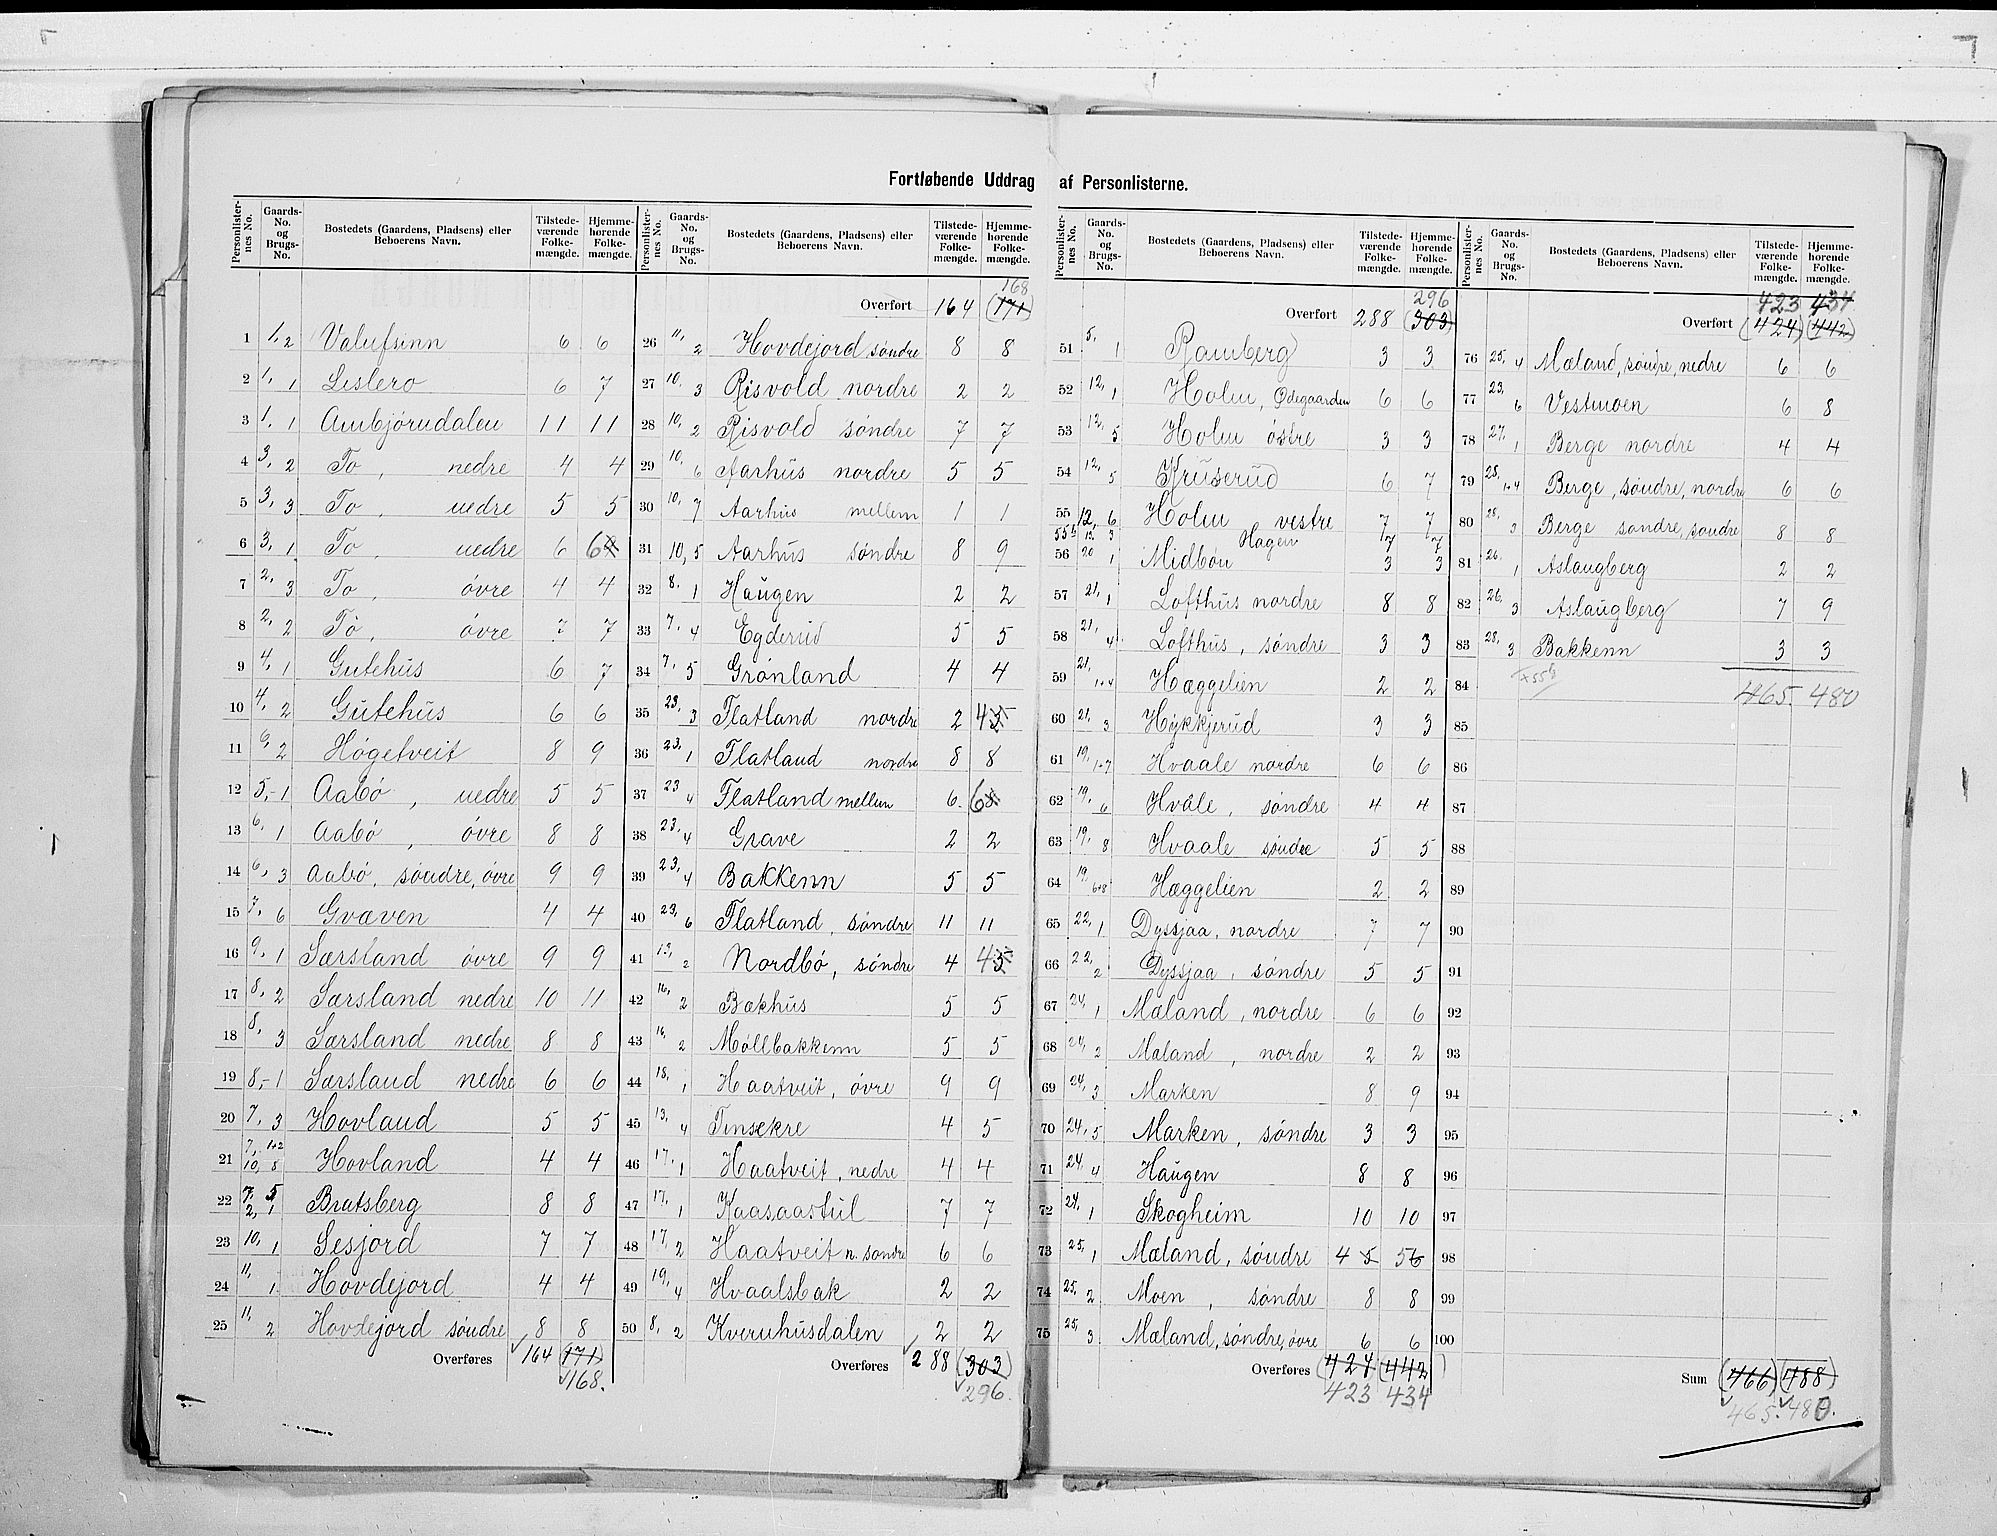 Fortløbende Uddrag af Personlisterne.
Personlister-nes No. Gaards-No. og Brugs-No. Bostedets (Gaardens, Pladsens) eller Beboerens Navn. Tilstede-værende Folke-mængde. Hjemme-hørende Folke-mængde.
1 1, 2 Valufsinn 6 6
2 1, 1 Leslero 6 7
3 1, 1 Ambjørndalen 11 11
4 3, 2 To, nedre 4 4
5 3, 3 To, nedre 5 5
6 3, 1 To, nedre 6 6
7 2, 3 To, øvre 4 4
8 2, 2 To, øvre 7 7
9 4, 1 Gutehus 6 7
10 4, 2 Gutehus 6 6
11 6, 2 Høgetveit 8 9
12 5, 1 Aabø, nedre 5 5
13 6, 1 Aabø, øvre 8 8
14 6, 3 Aabø, søndre, øvre 9 9
15 7, 6 Gvæven 4 4
16 9, 1 Særsland øvre 9 9
17 8, 2 Særsland nedre 10 11
18 8, 3 Særsland nedre 8 8
19 8, 1 Særsland nedre 6 6
20 7, 3 Hovland 5 5
21 7, 1+2 10, 8 Hovland 4 4
22 7, 5 2, 1 Bratsberg 8 8
23 10, 1 Sesjord 7 7
24 11, 1 Hovdejord 4 4
25 11, 2 Hovdejord søndre 8 8
Overføres 164 (171)
168.
Personlister-nes No. Gaards-No. og Brugs-No. Bostedets (Gaardens, Pladsens) eller Beboerens Navn. Tilstede-værende Folke-mængde. Hjemme-hørende Folke-mængde.
168
Overført 164 (171)
26 11, 2 Hovdejord søndre 8 8
27 10, 3 Risvold nordre 2 2
28 10, 2 Risvold søndre 7 7
29 10, 6 Aarhus nordre 5 5
30 10, 7 Aarhus mellem 1 1
31 10, 5 Aarhus søndre 8 9
32 8, 1 Haugen 2 2
33 7, 4 Egderud 5 5
34 7, 5 Grønland 4 4
35 23, 3 Flatland nordre 2 4 5
36 23, 1 Flatland nordre 8 8
37 23 4 Flatland mellem 6 6 8
38 23, 4 Grave 2 2
39 23, 4 Bakkenn 5 5
40 23, 6 Flatland, søndre 11 11
41 13, 2 Nordbø, søndre 4 4 5
42 16, 2 Bakhus 5 5
43 16, 2 Møllbakkenn 5 5
44 18, 1 Haatveit, øvre 9 9
45 13, 4 Tinsekre 4 5
46 17, 1 Haatveit, nedre 4 4
47 17, 1 Kaasaastul 7 7
48 17, 2 Haatveit n. søndre 6 6
49 19, 4 Hvaalsbak 2 2
50 8, 2 Kvernhusdalen 2 2
Overføres 288 (303)
296.
Personlister-nes No. Gaards-No. og Brugs-No. Bostedets (Gaardens, Pladsens) eller Beboerens Navn. Tilstede-værende Folke-mængde. Hjemme-hørende Folke-mængde.
296
Overført 288 (303)
51 5, 1 Ramberg 3 3
52 12, 1 Holm, Ødegaarden 6 6
53 12, 5 Holm østre 3 3
54 12, 5 Kruserud 6 7
55 12, 6 Holm vestre 7 7
55b 12, 3 Hagen 7 7
56 20 1 Midbøn 3 3
57 21, 1 Lofthus nordre 8 8
58 21, 4 Lofthus, søndre 3 3
59 21, 1+4 Hæggelien 2 2
60 21, 3 Hykkjerud 3 3
61 19, 1+7 Hvaale nordre 6 6
62 19, 6 Hvåle, søndre 4 4
63 19, 8 Hvaale søndre 5 5
64 19, 6+8 Hæggelien 2 2
65 22, 1 Dyssjaa, nordre 7 7
66 22, 2 Dyssjaa, søndre 5 5
67 24, 1 Mæland, nordre 6 6
68 24, 2 Mæland, nordre 2 2
69 24, 3 Marken 8 9
70 24, 5 Marken, søndre 3 3
71 24, 4 Haugen 8 8
72 24, 1 Skogheim 10 10
73 25, 1 Mæland, søndre 4 5 5 6
74 25, 2 Moen, søndre 8 8
75 25, 3 Mæland, søndre, øvre 6 6
Overføres (424) (442)
423 434
Personlister-nes No. Gaards-No. og Brugs-No. Bostedets (Gaardens, Pladsens) eller Beboerens Navn. Tilstede-værende Folke-mængde. Hjemme-hørende Folke-mængde.
423 434
Overført (424) (442)
76 25, 4 Mæland, søndre, nedre 6 6
77 23, 6 Vestmoen 6 8
78 27, 1 Berge nordre 4 4
79 28, 1+4 Berge, søndre, nordre 6 6
80 28, 3 Berge søndre, søndre 8 8
81 26, 1 Aslaugberg 2 2
82 26, 3 Aslaugberg 7 9
83 28, 3 Bakkenn 3 3
84 +55b 465 480
85
86
87
88
89
90
91
92
93
94
95
96
97
98
99
100
Sum (466) (488)
465. 480.